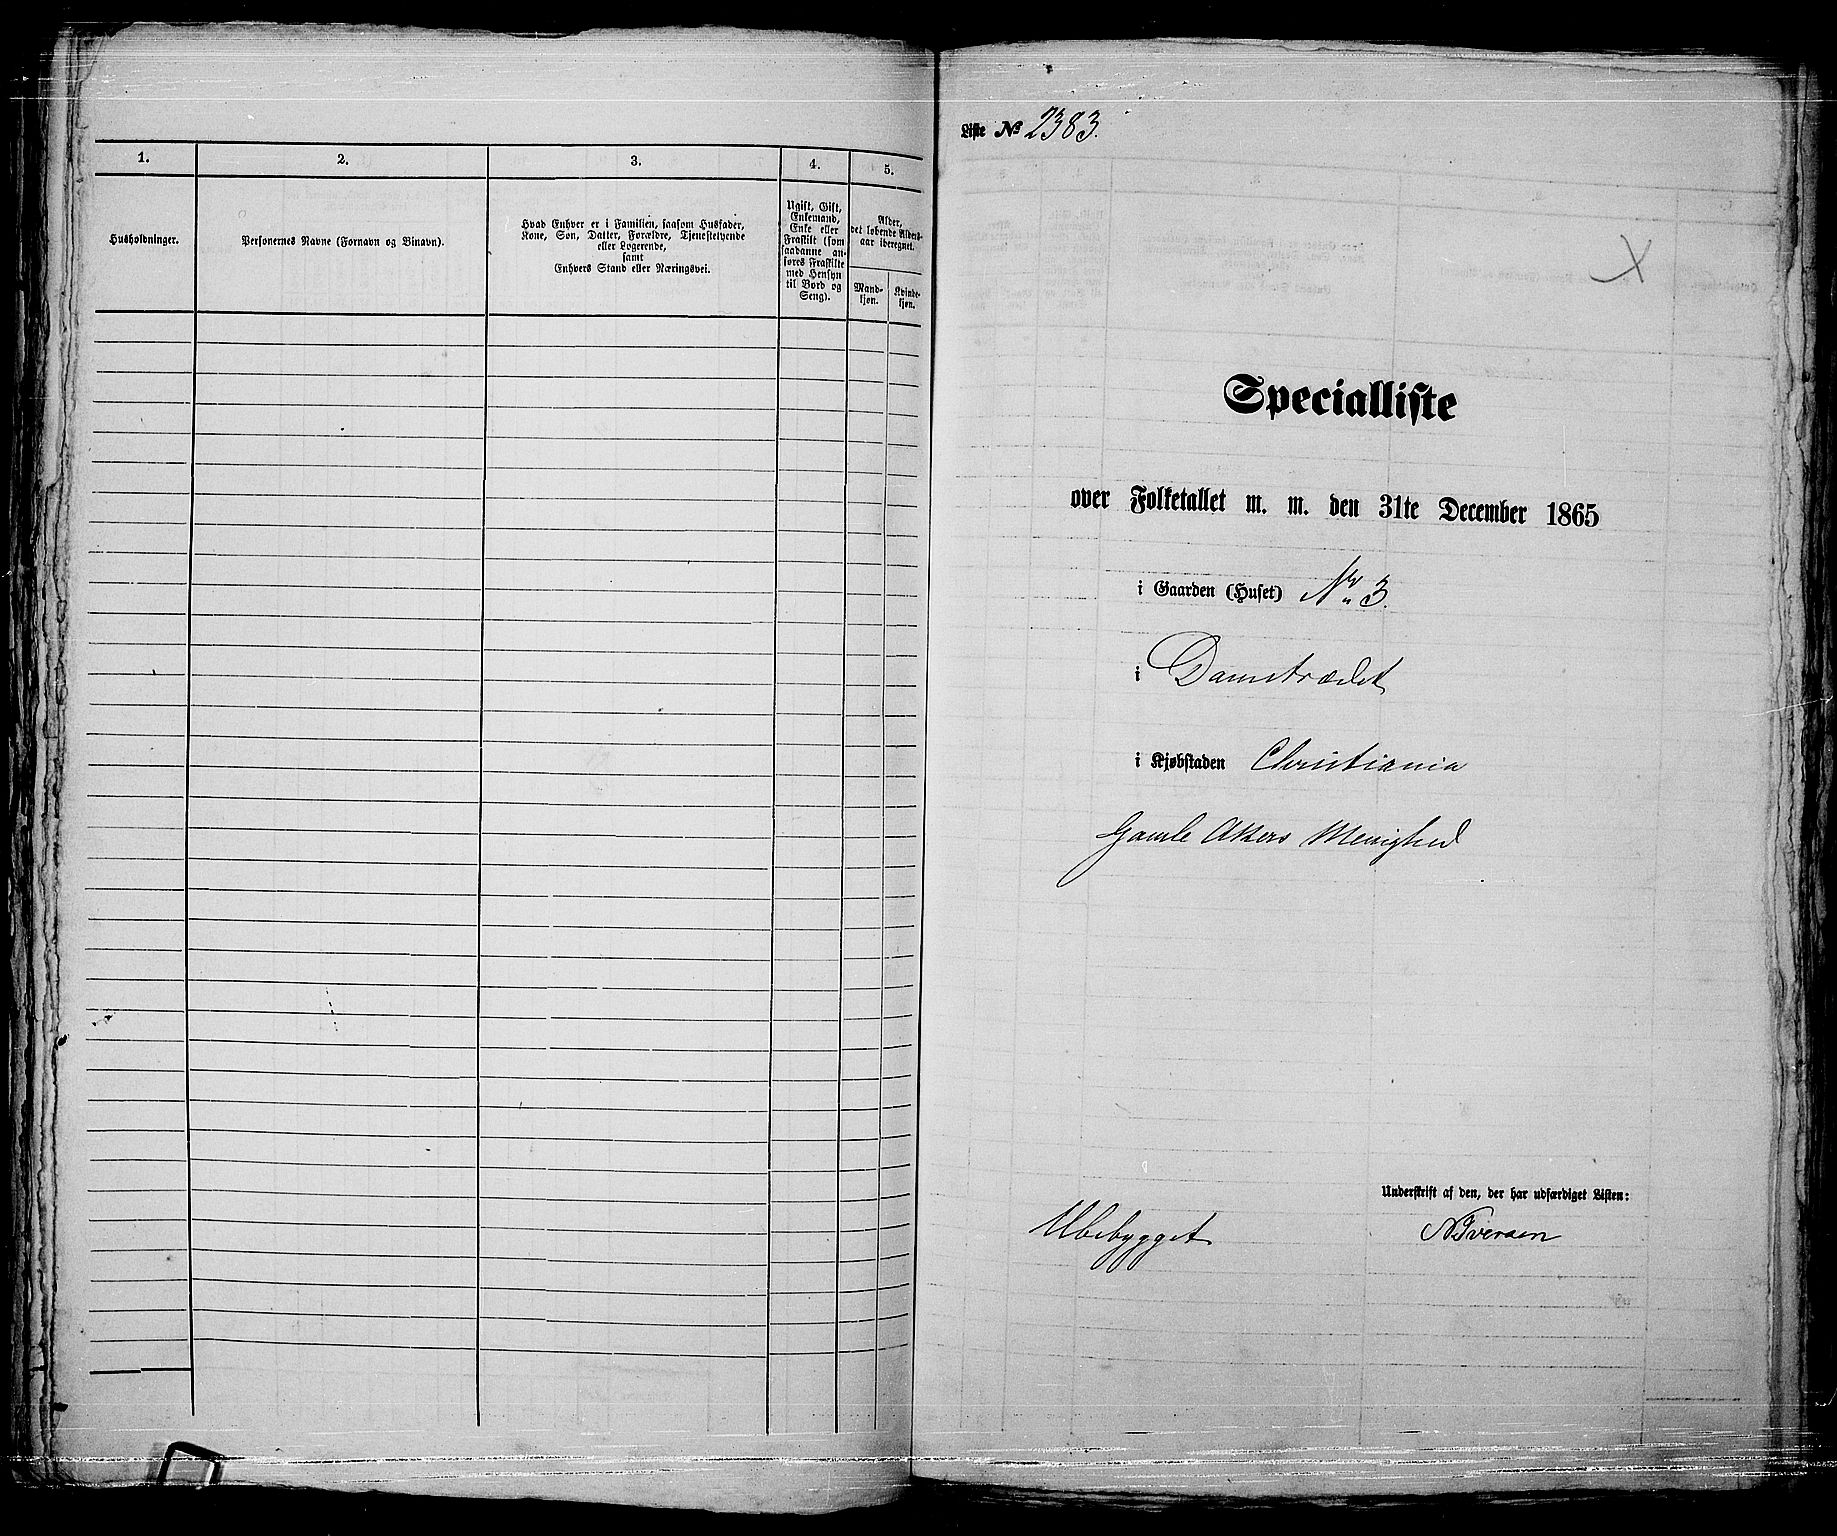 1.
2.
3.
4.
5.
Husholdninger.
Personernes Navne (Fornavn og Binavn).
Hvad Enhver er i Familien, saasom Husfader,
Kone, Søn, Datter, Forældre, Tjenestetyende
eller Logerende,
samt
Enhvers Stand eller Næringsvei.
Ugift, Gift,
Enkemand,
Enke eller
Fraskilt (som
saadanne an-
føres Fraskilte
med Hensyn
til Bord og
Seng).
Alder,
det løbende Alders-
aar iberegnet.
Mand-
kjøn.
Kvinde-
kjøn.
Liste No 2383.
Specialliste
over Folketallet m. m. den 31te December 1865
i Gaarden (Huset) Nr 3.
i Damstrædet
i Kjøbstaden Christiania
Gamle Akers Menighed
Underskrift af den, der har udfærdiget Listen:
Ubebygget
N Iversen